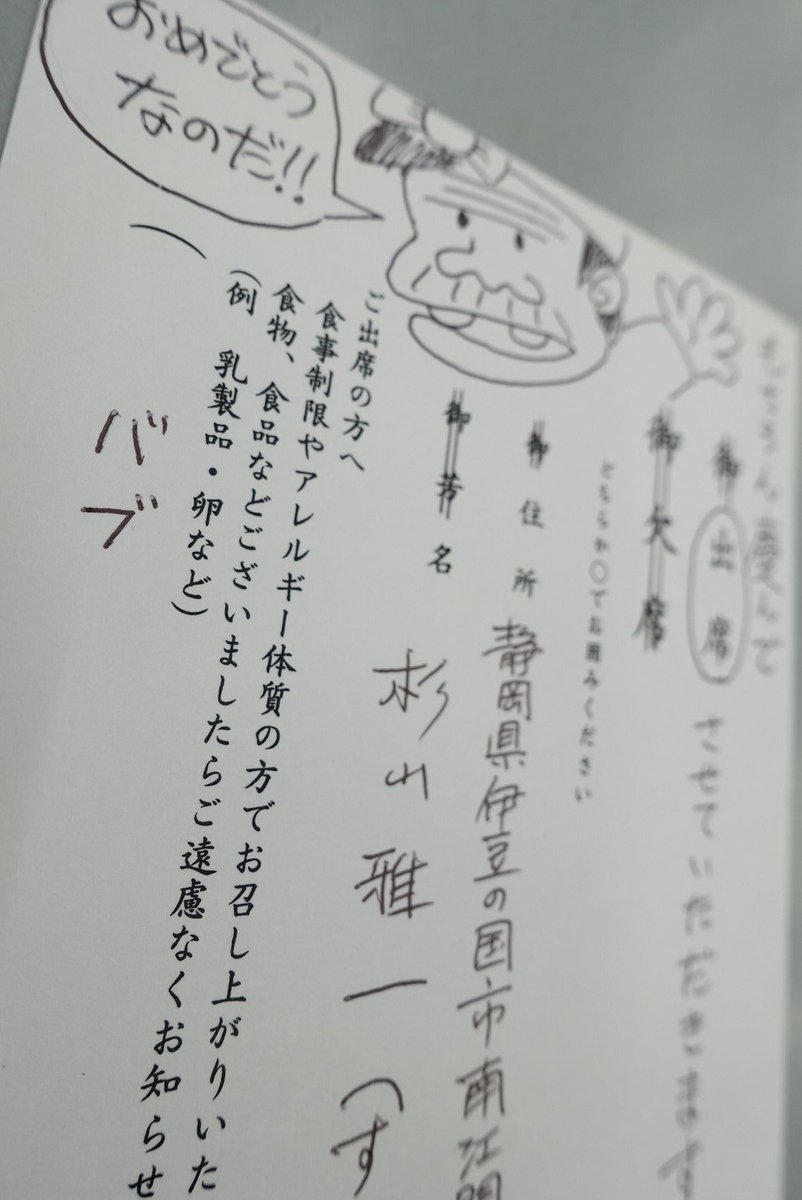 おめでとう
なのだ!!
もちろん、慶んで
御出席 させていただきます
御欠席
どちらか〇でお囲みください
御住所 静岡県伊豆の国市南江間
御芳名 杉山雅一 (す
ご出席の方へ
食事制限やアレルギー体質の方でお召し上がりいた
食物、食品などございましたらご遠慮なくお知らせ
(例 乳製品・卵など)
バブ